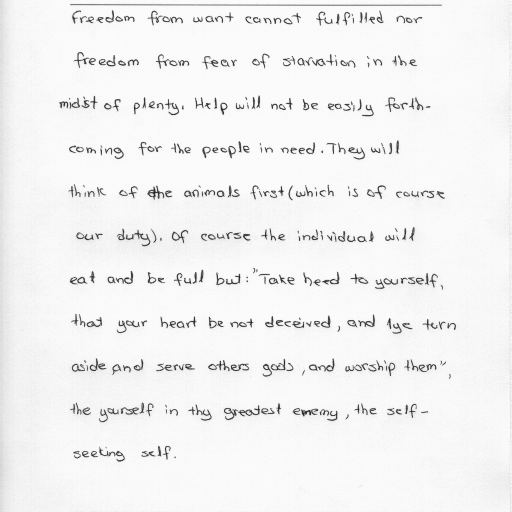 Freedom from want cannot fulfilled nor
freedom from fear of starvation in the
midst of plenty. Help will not be easily forth-
coming for the people in need. They will
think of the animals first (which is of course
our duty). Of course the individual will
eat and be full but: "Take heed to yourself,
that your heart be not deceived, and 1ye turn
aside and serve others gods, and worship them",
the yourself in thy greatest enemy, the self-
seeking self.